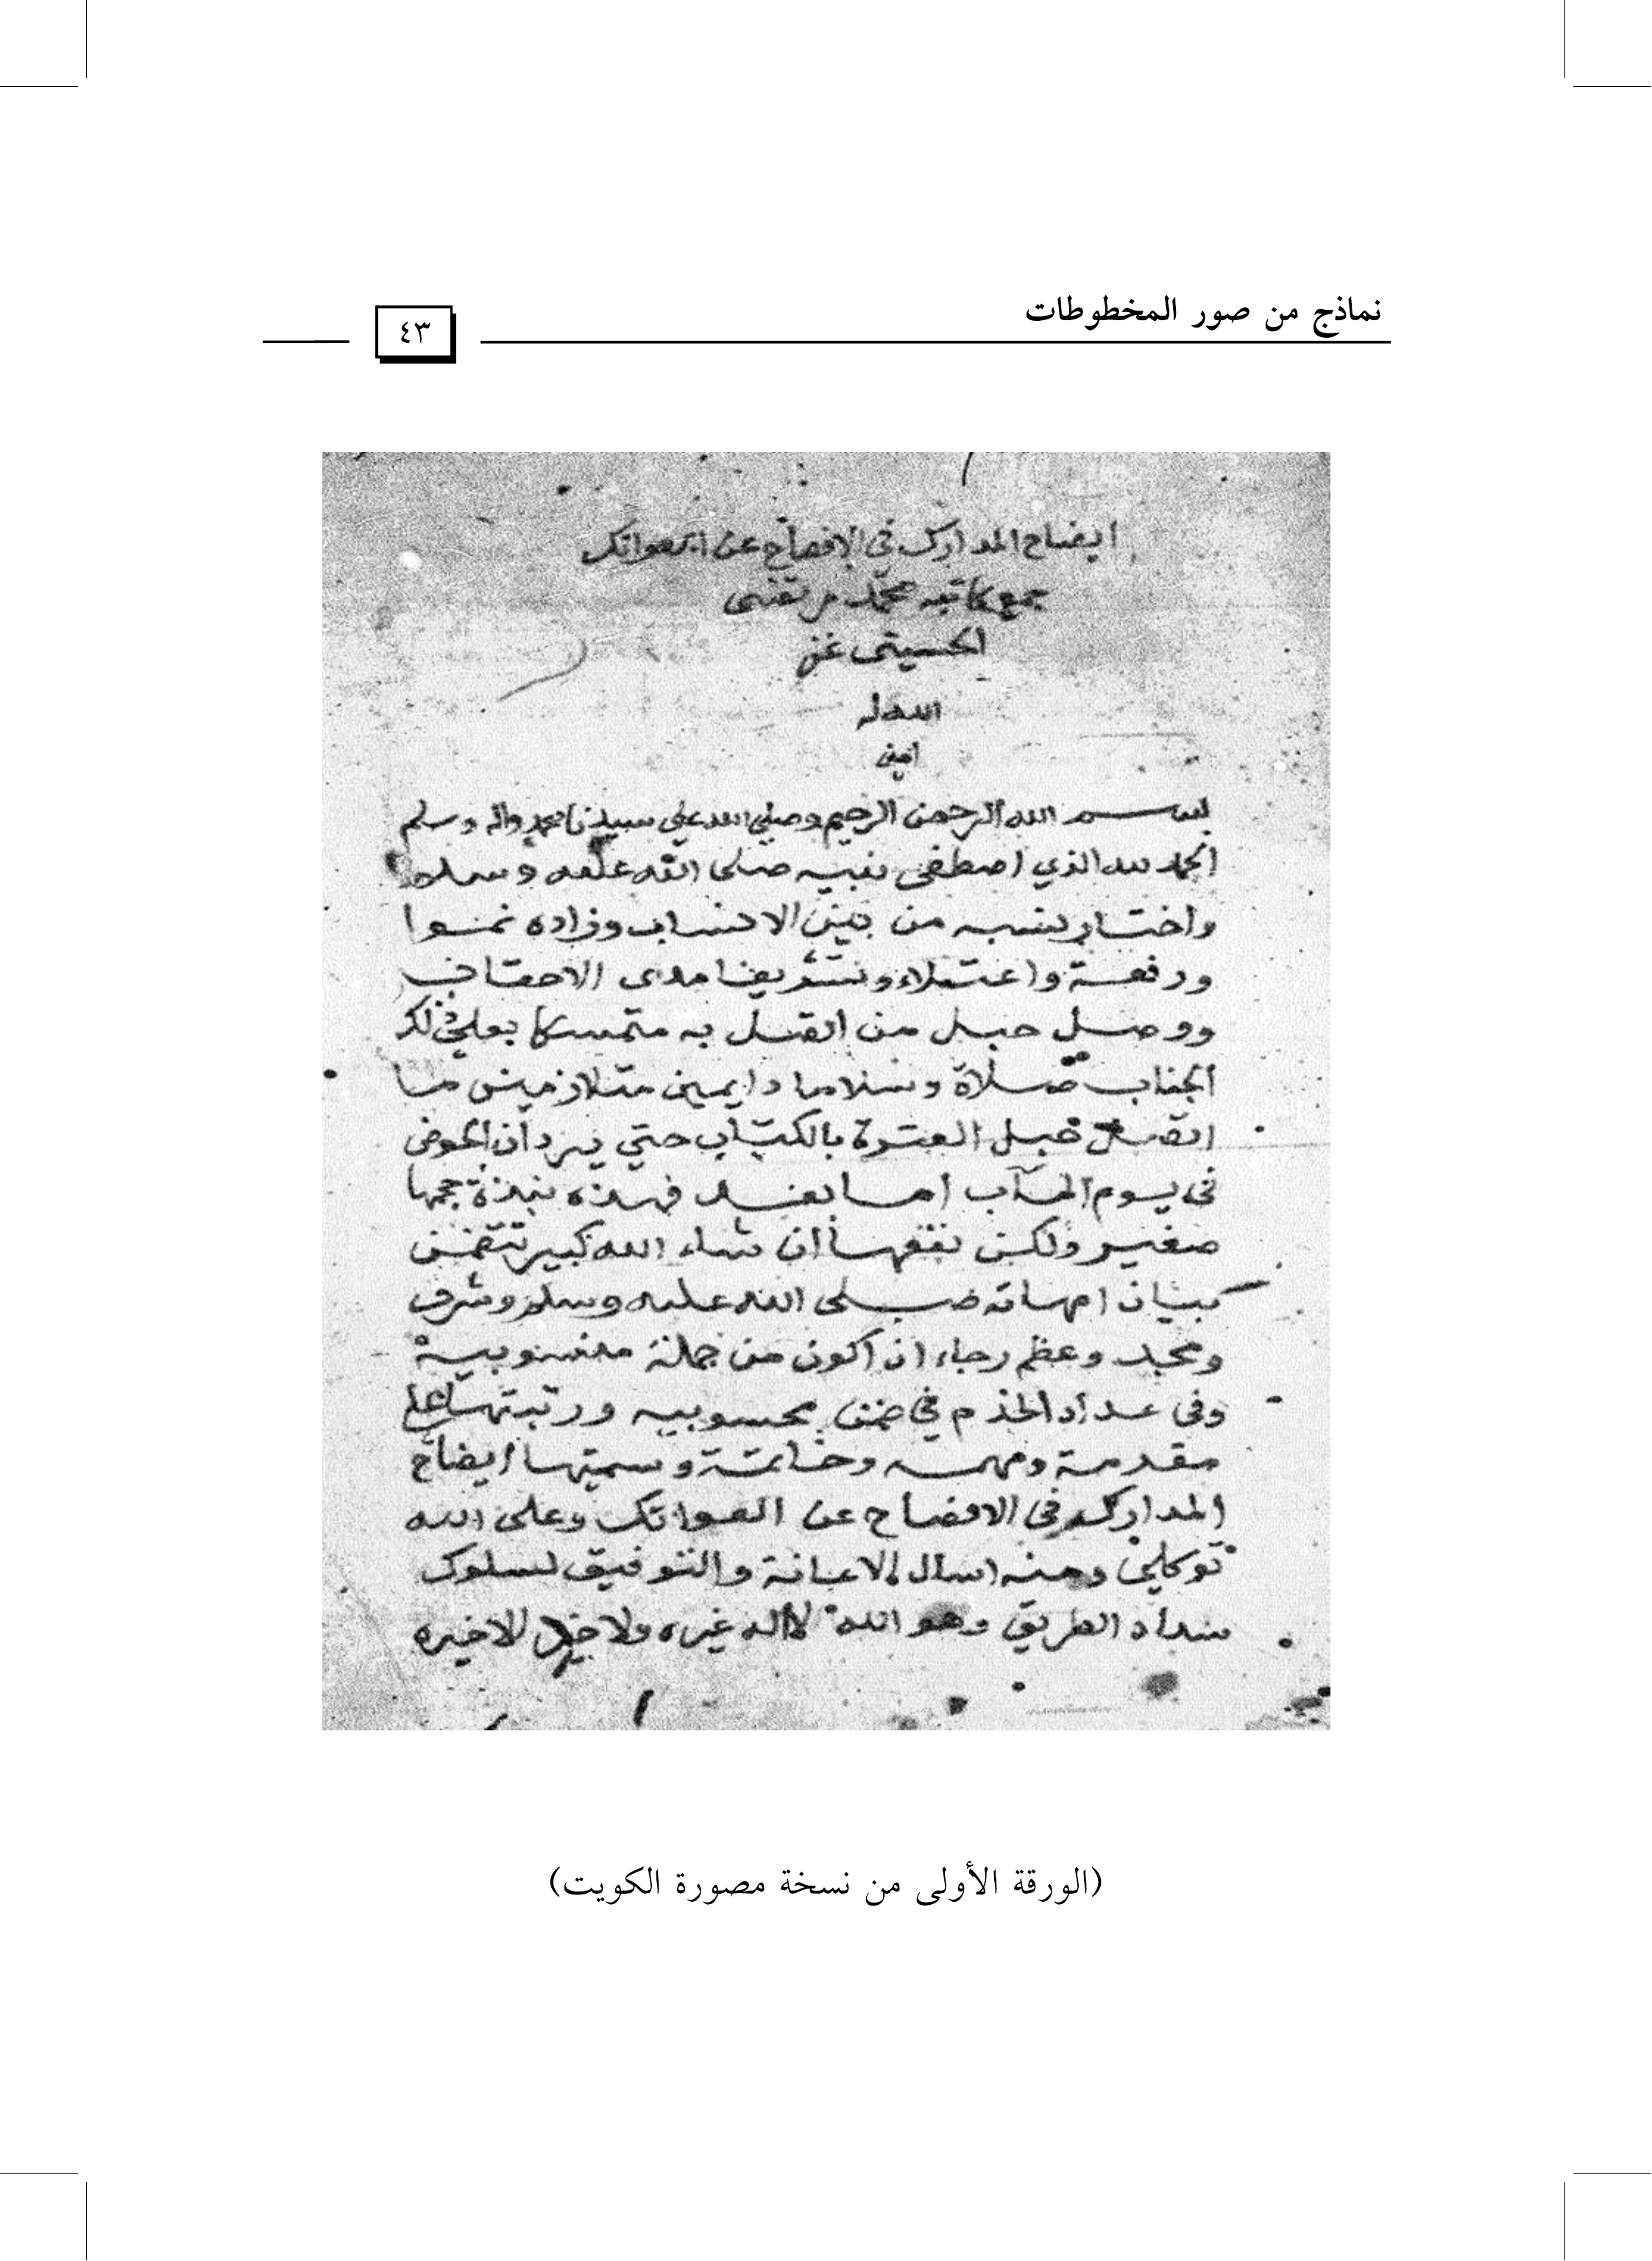 نماذج من صور المخطوطات
٤٣
ايضاح المدارك في الافصاح عن العواتك
جمع كاتبه محمد مرتضى
الحسيني غفر
الله له
امين
بسم الله الرحمن الرحيم وصلي الله علي سيدنا محمد واله وسلم
الحمد لله الذي اصطفى نبيه صلى الله عليه وسلم
واختار نسبه من بين الانساب وزاده نموا
ورفعة واعتلاء وتشريفا مدى الاحقاف
ووصل حبل من اتصل به متمسكا بعلي ذلك
الجناب صلاة وسلاما دايمين متلازمين ما
اتصل حبل العترة بالكتاب حتي يردان الحوض
في يوم المآب اما بعد فهذه نبذة حجمها
صغير ولكن نفعها ان شاء الله كبير تتضمن
بيان امهاته صلى الله عليه وسلم وشرف
ومجد وعظم رجاء ان اكون من جملة منسوبيه
وفي عداد الخدم في ضمن محسوبيه ورتبتها علي
مقدمة ومهمه وخاتمة وسميتها ايضاح
المدارك في الافصاح عن العواتك وعلى الله
توكلي ومنه اسال الاعانة والتوفيق لسلوك
سداد الطريق وهو الله لا اله غيره ولا خير الا خيره
(الورقة الأولى من نسخة مصورة الكويت)